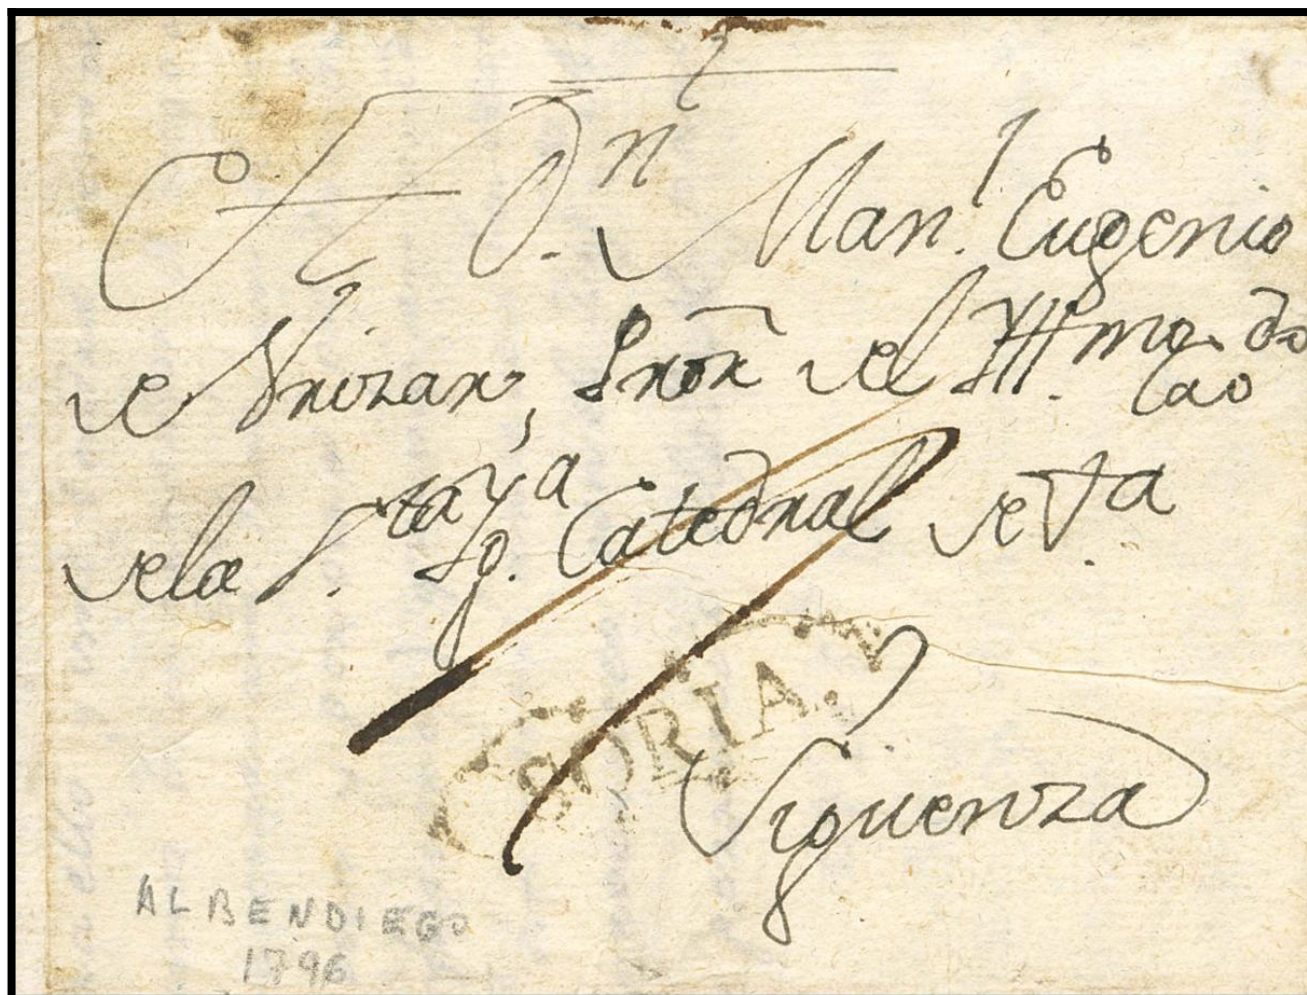 †
A D.n Man.l Eugenio
de Vrizar, Prior del Yll.mo Cav.do
dela S.ta Yg.a Catedral de V.ta
SORIA.
Siguenza
ALBENDIEGO
1796